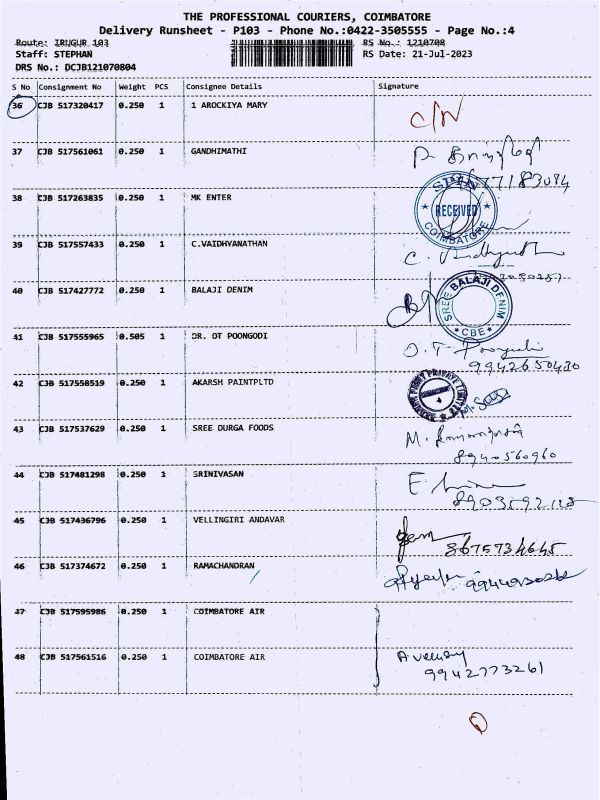 THE PROFESSIONAL COURIERS, COIMBATORE
Delivery Runsheet - P103 - Phone No.:0422-3505555 - Page No.:4
Route: IRUGUR 103 RS No.: 1210708
Staff: STEPHAN RS Date: 21-Jul-2023
DRS No.: DCJB121070804
S No Consignment No Weight PCS Consignee Details Signature
36 CJB 517320417 0.250 1 1 AROCKIYA MARY C/N
37 CJB 517561061 0.250 1 GANDHIMATHI
38 CJB 517263835 0.250 1 MK ENTER
RECEIVED
COIMBATORE
39 CJB 517557433 0.250 1 C.VAIDHYANATHAN C.
40 CJB 517427772 0.250 1 BALAJI DENIM
SREE BALAJI DENIM
CBE
41 CJB 517555965 0.505 1 DR. OT POONGODI O.T.
9942650430
42 CJB 517558519 0.250 1 AKARSH PAINTPLTD
43 CJB 517537629 0.250 1 SREE DURGA FOODS M.
8940560960
44 CJB 517481298 0.250 1 SRINIVASAN
45 CJB 517436796 0.250 1 VELLINGIRI ANDAVAR
8675734645
46 CJB 517374672 0.250 1 RAMACHANDRAN
47 CJB 517595986 0.250 1 COIMBATORE AIR
48 CJB 517561516 0.250 1 COIMBATORE AIR
9942773261